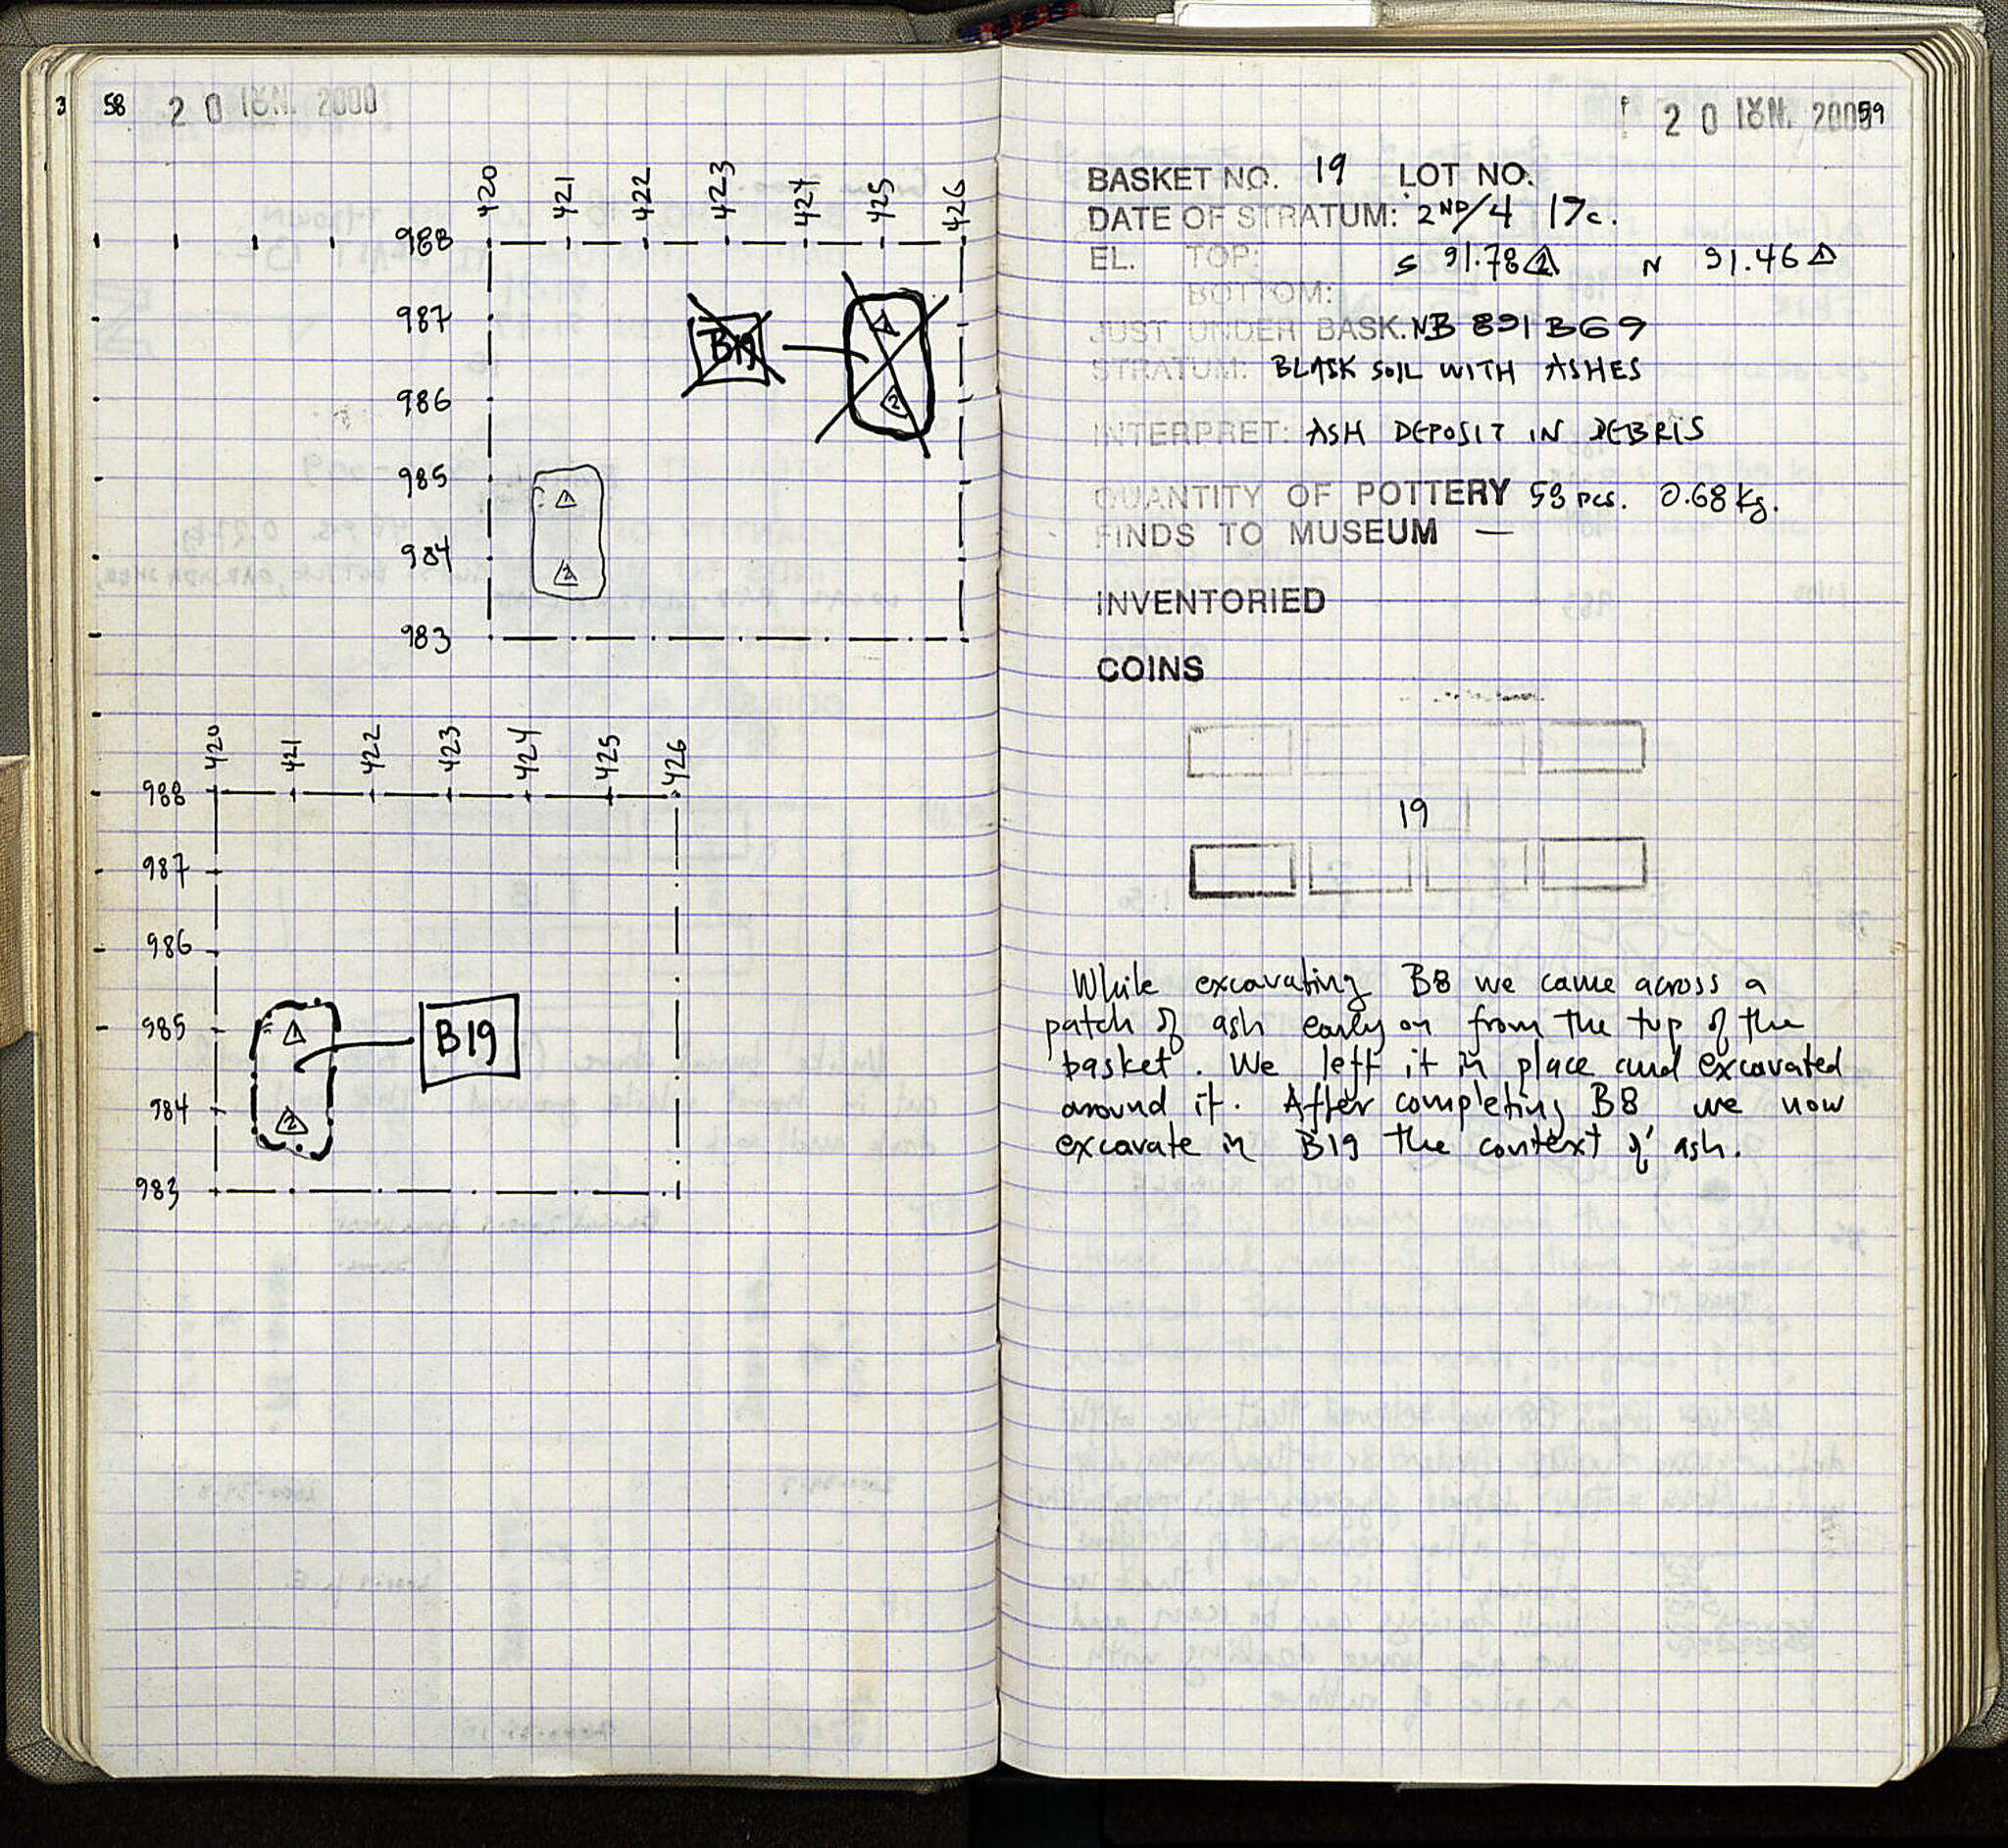 3
58
2 0 ΙΟΥΝ. 2000
420 421 422 423 424 425 426
988
987
B19
1
986
2
985
1
984
2
983
420 421 422 423 424 425 426
988
987
986
985
1
B19
984
2
983
2 0 ΙΟΥΝ. 2000
59
BASKET NO. 19 LOT NO.
DATE OF STRATUM: 2ND/4 17c.
EL. TOP: S 91.78 2 N 91.46 1
BOTTOM:
JUST UNDER BASK. NB 891 B69
STRATUM: BLASK SOIL WITH ASHES
INTERPRET: ASH DEPOSIT IN DEBRIS
QUANTITY OF POTTERY 59 pcs. 0.68 Kg.
FINDS TO MUSEUM —
INVENTORIED
COINS
19
While excavating B8 we came across a
patch of ash early on from the top of the
basket. We left it in place and excavated
around it. After completing B8 we now
excavate in B19 the context of ash.